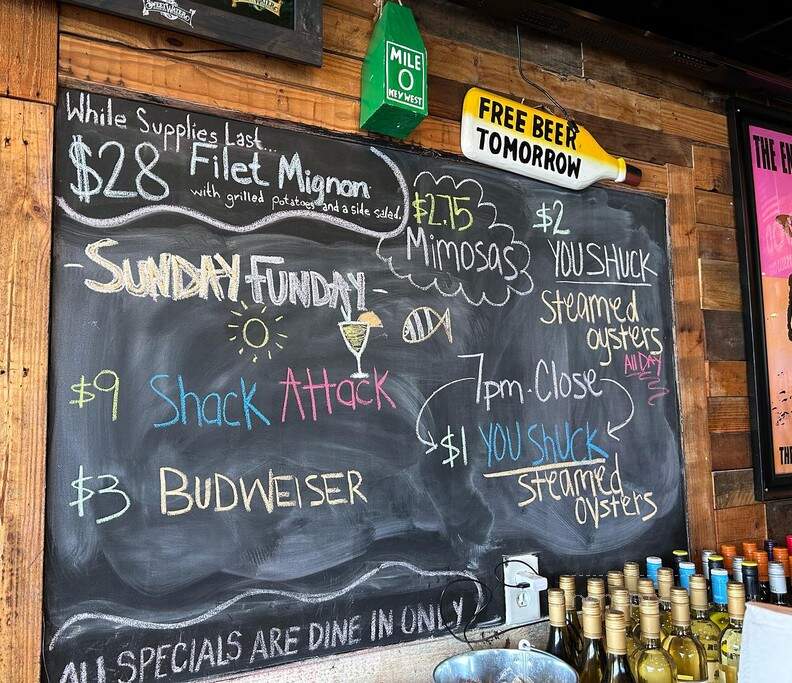 SWEETWATER
MILE
0
KEY WEST
FREE BEER
TOMORROW
THE EN
While Supplies Last...
$28 Filet Mignon
with grilled potatoes and a side salad.
$2.75
Mimosas
$2
YOU SHUCK
Steamed
oysters
All DAY
-SUNDAY FUNDAY-
7pm-Close
$1 YOU ShUCK
Steamed
oysters
$9 Shack Attack
$3 BUDWEISER
ALL SPECIALS ARE DINE IN ONLY